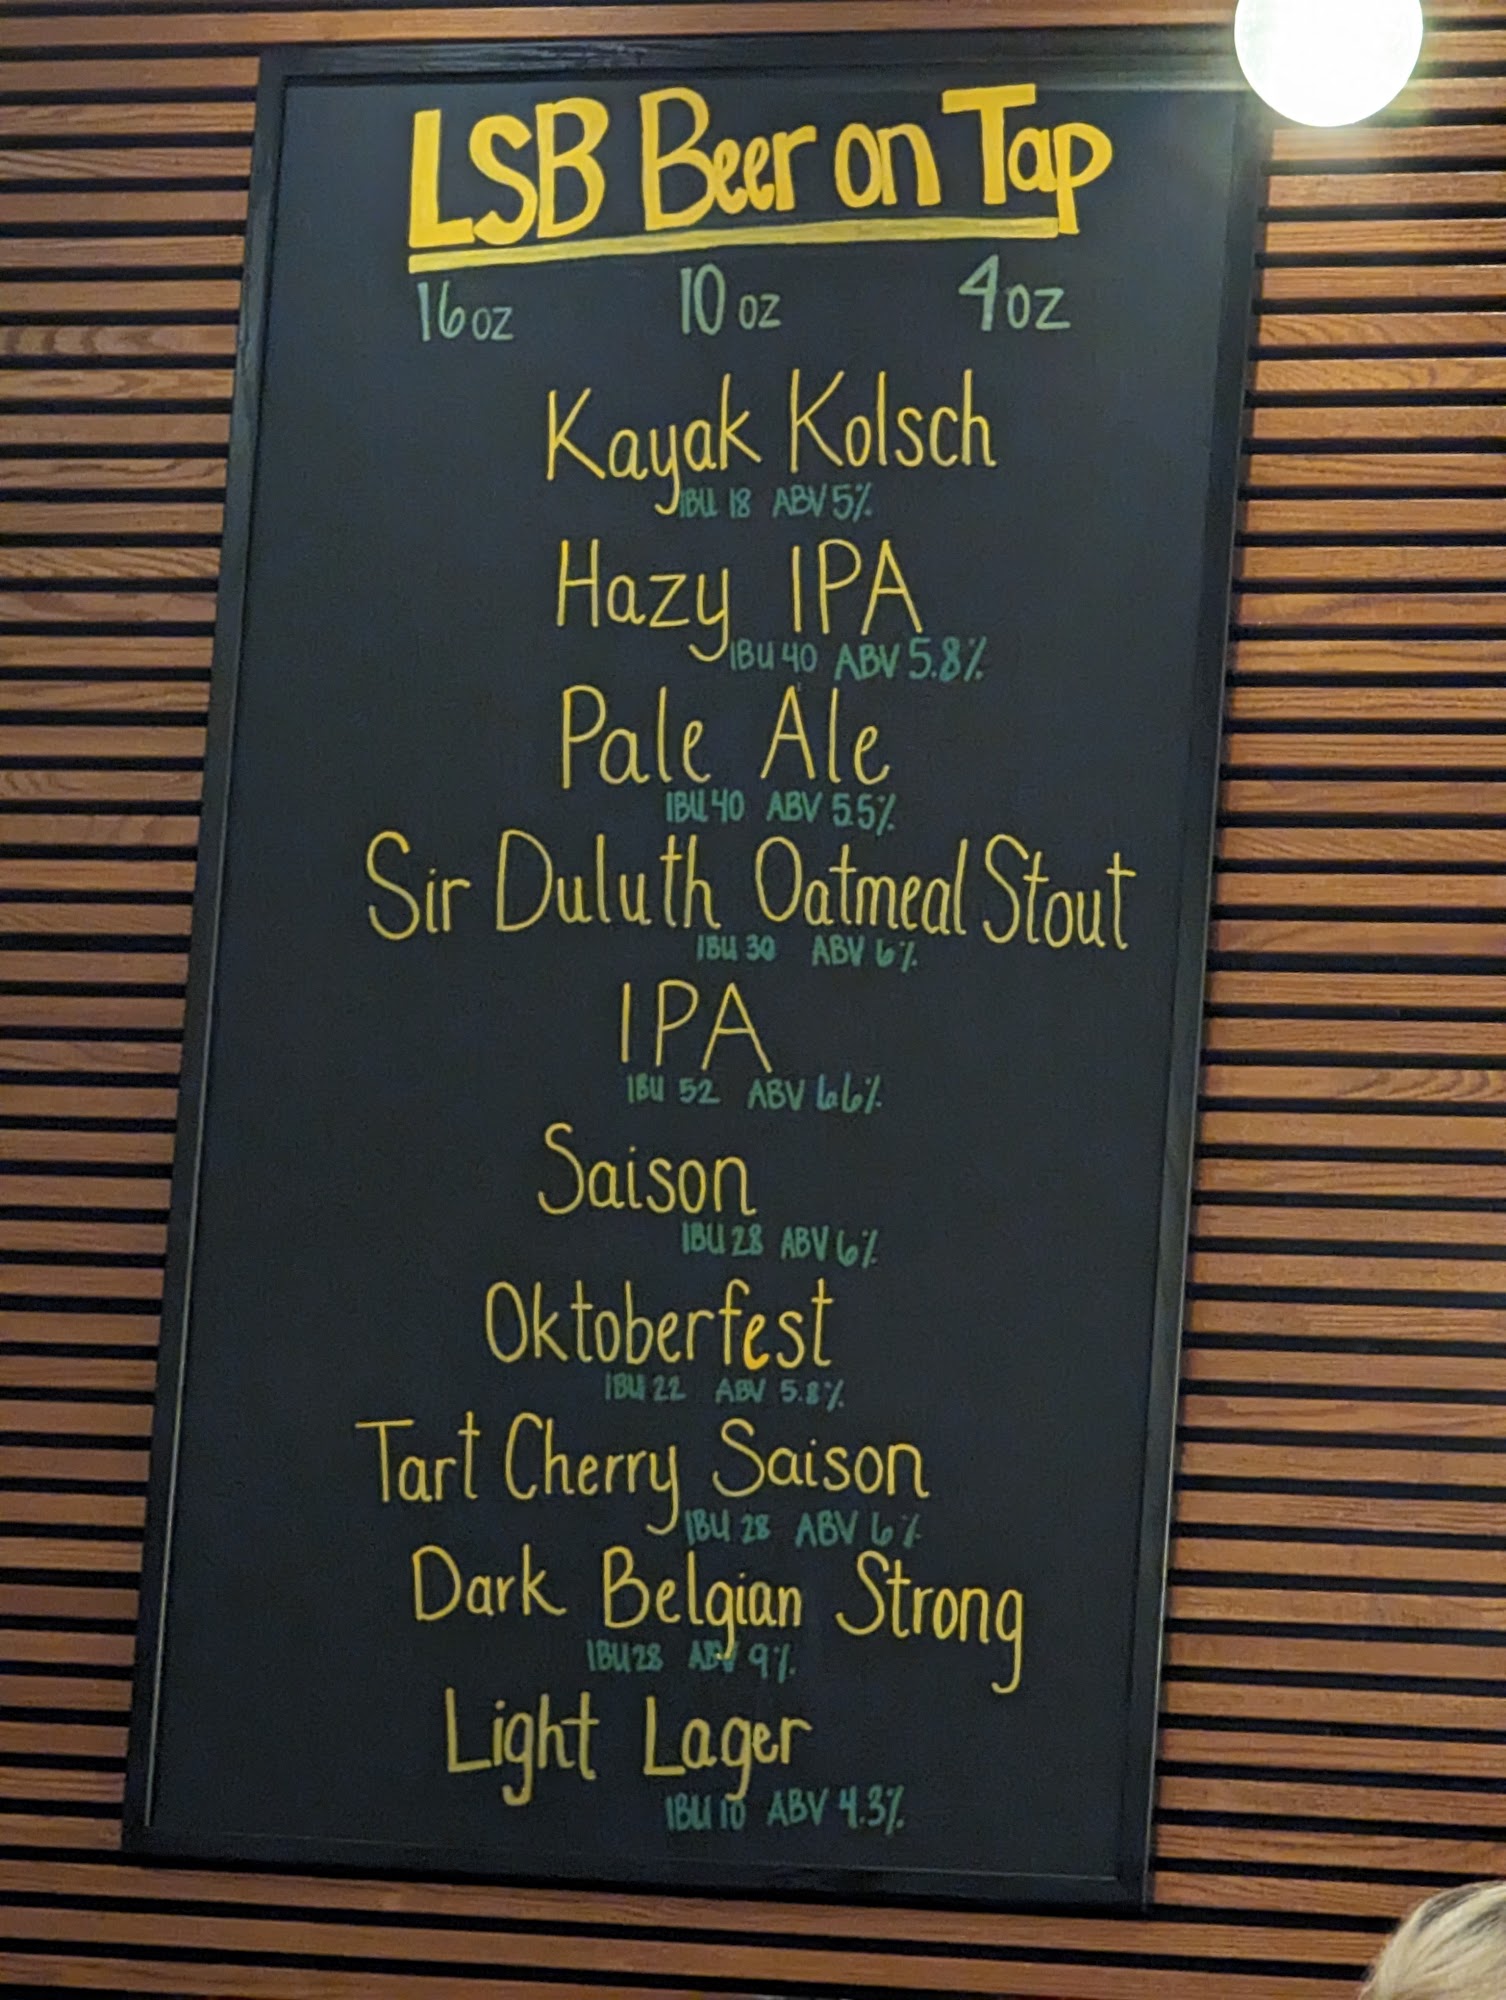 LSB Beer on Tap
16oz 10oz 4oz
Kayak Kolsch
IBU 18 ABV 5%
Hazy IPA
IBU 40 ABV 5.8%
Pale Ale
IBU 40 ABV 5.5%
Sir Duluth Oatmeal Stout
IBU 30 ABV 6%
IPA
IBU 52 ABV 6.6%
Saison
IBU 28 ABV 6%
Oktoberfest
IBU 22 ABV 5.8%
Tart Cherry Saison
IBU 28 ABV 6%
Dark Belgian Strong
IBU 28 ABV 9%
Light Lager
IBU 10 ABV 4.3%